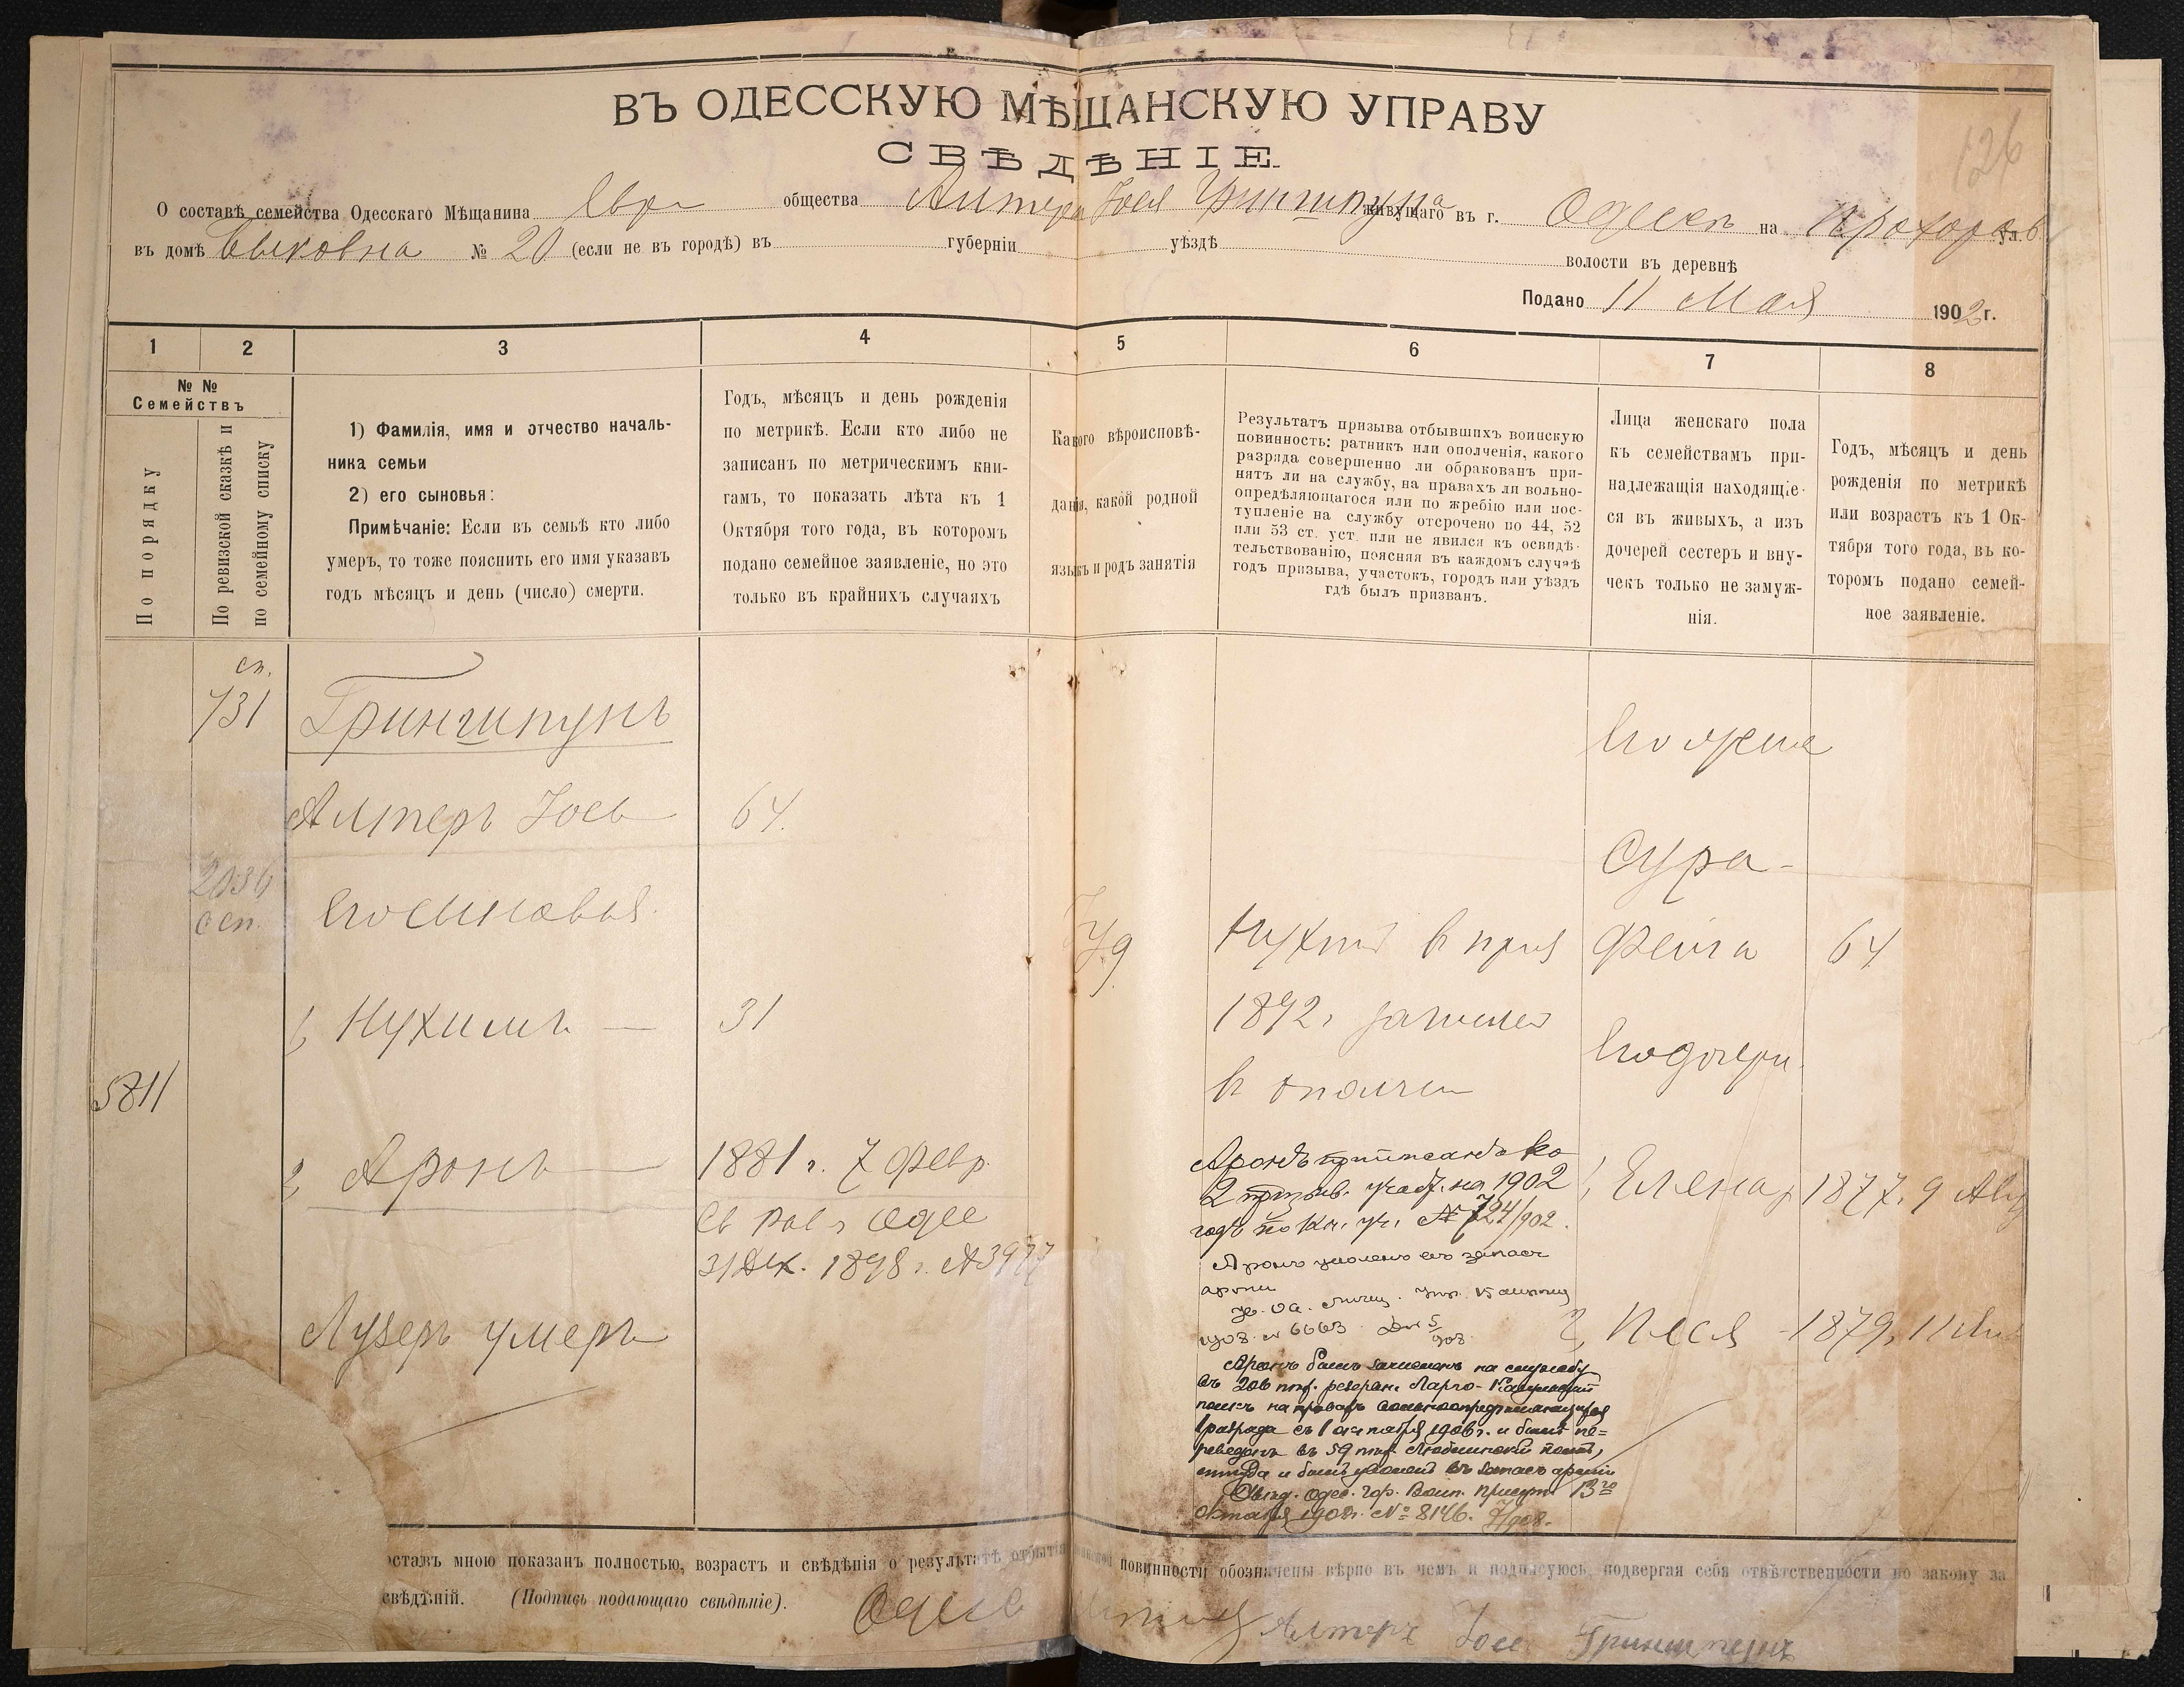 126
ВЪ ОДЕССКУЮ МѢЩАНСКУЮ УПРАВУ
СВѢДѢНІЕ
О составѣ семейства Одесскаго Мѣщанина Евр. общества Алтера Іося Гриншпуна живущаго въ г. Одессѣ на Прохоров. ул.
въ домѣ Быковна № 20 (если не въ городѣ) въ губерніи уѣздѣ волости въ деревнѣ
Подано 11 Мая 1902 г.
1 2 3 4 5 6 7 8
№ №
Семействъ
По порядку
По ревизской сказкѣ и
по семейному списку
1) Фамилія, имя и отчество началь-
ника семьи
2) его сыновья:
Примѣчаніе: Если въ семьѣ кто либо
умеръ, то тоже пояснить его имя указавъ
годъ мѣсяцъ и день (число) смерти.
Годъ, мѣсяцъ и день рожденія
по метрикѣ. Если кто либо не
записанъ по метрическимъ кни-
гамъ, то показать лѣта къ 1
Октября того года, въ которомъ
подано семейное заявленіе, но это
только въ крайнихъ случаяхъ
Какого вѣроисповѣ-
данія, какой родной
языкъ и родъ занятія
Результатъ призыва отбывшихъ воинскую
повинность: ратникъ или ополченія, какого
разряда совершенно ли обракованъ при-
нятъ ли на службу, на правахъ ли вольно-
опредѣляющагося или по жребію или пос-
тупленіе на службу отсрочено по 44, 52
или 53 ст. уст. или не явился къ освидѣ-
тельствованію, поясняя въ каждомъ случаѣ
годъ призыва, участокъ, городъ или уѣздъ
гдѣ былъ призванъ.
Лица женскаго пола
къ семействамъ при-
надлежащія находящіе-
ся въ живыхъ, а изъ
дочерей сестеръ и вну-
чекъ только не замуж-
нія.
Годъ, мѣсяцъ и день
рожденія по метрикѣ
или возрастъ къ 1 Ок-
тября того года, въ ко-
торомъ подано семей-
ное заявленіе.
сп.
731
Гриншпунъ
Его жена
Алтеръ Іось 64.
Сура-
2036
сп.
Его сыновья
Нухимъ в приз
Фейга 64
1, Нухимъ — 31
1892 г. зачислен
в ополчен
Его дочери
5811
2, Аронъ — 1881 г. 7 февр.
Св. Рав. г. Одес
31 Дек. 1898 г. № 3977
Аронъ приписанъ ко
2 призыв. участ. на 1902
годъ по кн. уч. № 724/902.
1, Еленар 1877, 9 Авг
Аронъ уволенъ въ запасъ
арміи
908. № 6663
2, Песя - 1879, 11
Лузеръ умеръ
Аронъ былъ зачисленъ на службу
въ 206 пѣх. резервн. Ларго-Кагульскій
полкъ на правахъ вольноопредѣляющагося
1 разряда съ 1 октября 1906 г. и былъ пе-
реведенъ въ 59 пѣх. Люблинскій полкъ,
откуда и былъ уволенъ въ запасъ арміи
Свид. Одес. гор. Воин. присут. 13го
октября 1908 г. № 8146.
оставъ мною показанъ полностью, возрастъ и свѣдѣнія о результатѣ отбытія воинской повинности обозначены вѣрно въ чемъ и подписуюсь, подвергая себя отвѣтственности по закону за
свѣдѣній. (Подпись подающаго свѣдѣніе). Одесс
Алтеръ Іось Гриншпунъ